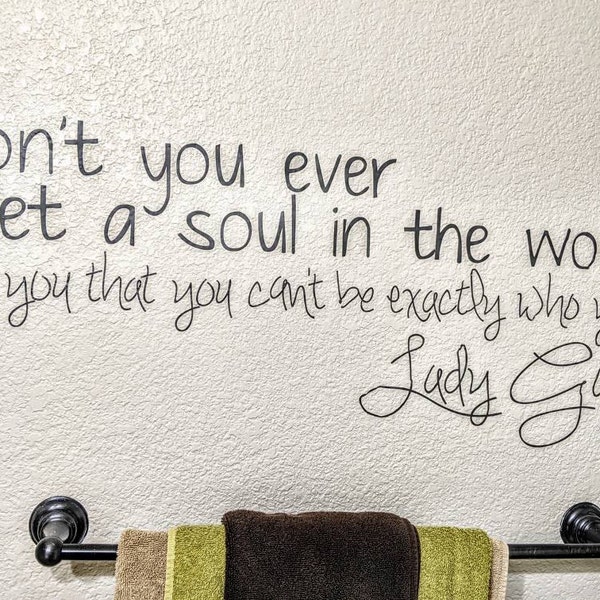 on't you ever
et a soul in the wo
you that you can't be exactly who y
Lady Ga